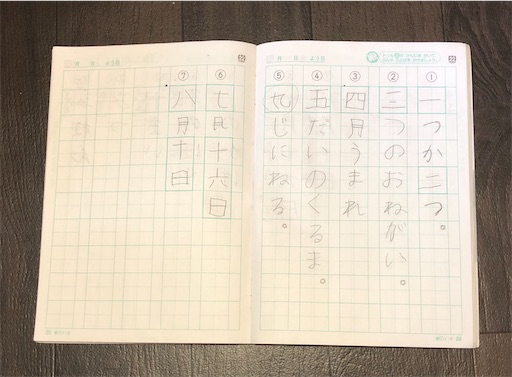 ① 一つか二つ。
② 三つのおねがい。
③ 四月うまれ
④ 五だいのくるま。
⑤ 九じにねる。
⑥ 七月十六日
⑦ 八月十日